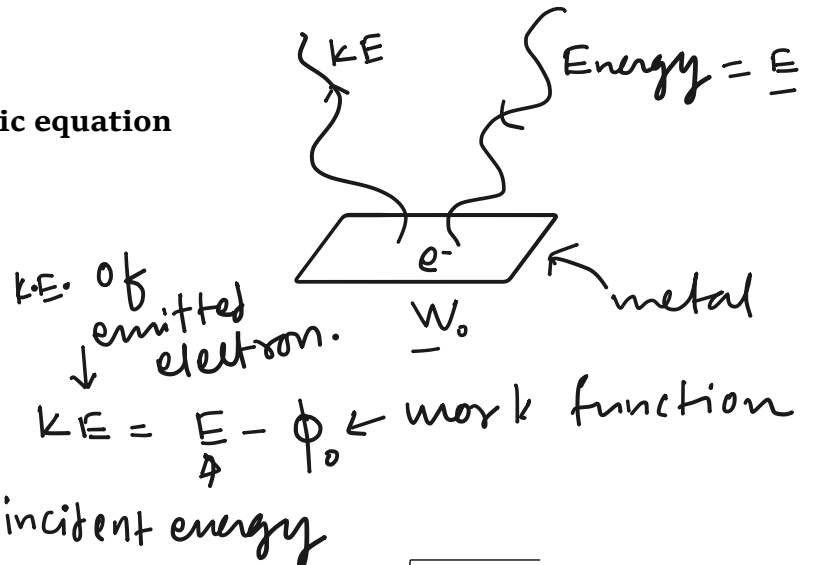 KE
Energy = E
ic equation
e-
K.E. of
emitted
electron.
metal
W₀
KE = E - ϕ₀ ← work function
incident energy